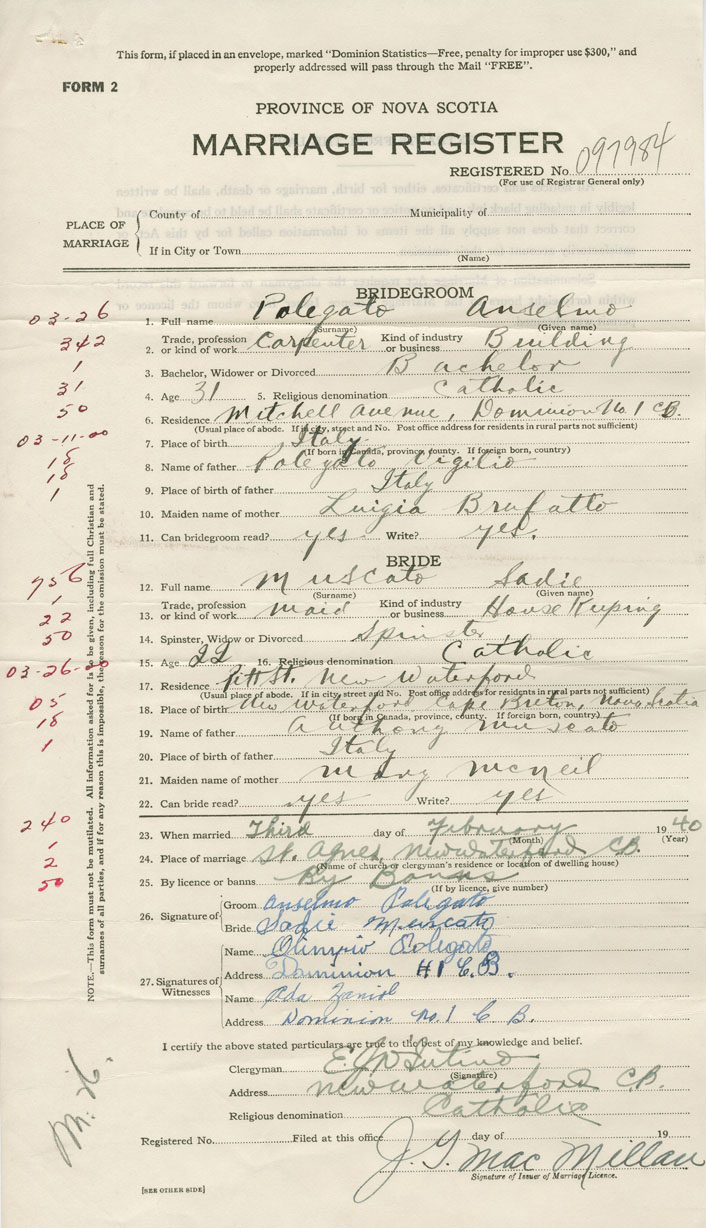 This form, if placed in an envelope, marked "Dominion Statistics—Free, penalty for improper use $300," and
properly addressed will pass through the Mail "FREE".
FORM 2
PROVINCE OF NOVA SCOTIA
MARRIAGE REGISTER
REGISTERED No. 097984
(For use of Registrar General only)
PLACE OF MARRIAGE
County of Municipality of
If in City or Town
(Name)
BRIDEGROOM
03-26 1. Full name Polegato Anselmo
(Surname) (Given name)
342 2. Trade, profession or kind of work Carpenter Kind of industry or business Building
1 3. Bachelor, Widower or Divorced Bachelor
31 4. Age 31 5. Religious denomination Catholic
50 6. Residence Mitchell Avenue, Dominion No. 1 C.B.
(Usual place of abode. If in city, street and No. Post office address for residents in rural parts not sufficient)
03-11-00 7. Place of birth Italy
(If born in Canada, province, county. If foreign born, country)
18 8. Name of father Polegato Vigilio
18 9. Place of birth of father Italy
1 10. Maiden name of mother Luigia Brufatto
11. Can bridegroom read? yes. Write? yes.
BRIDE
756 12. Full name Muscato Sadie
(Surname) (Given name)
1 13. Trade, profession or kind of work maid Kind of industry or business House Keeping
22
50 14. Spinster, Widow or Divorced Spinster
15. Age 22 16. Religious denomination Catholic
03-26-00 17. Residence Pitt St. New Waterford
(Usual place of abode. If in city, street and No. Post office address for residents in rural parts not sufficient)
05 18. Place of birth New Waterford Cape Breton, Nova Scotia
(If born in Canada, province, county. If foreign born, country)
18 19. Name of father Anthony Muscato
1 20. Place of birth of father Italy
21. Maiden name of mother Mary McNeil
22. Can bride read? yes Write? yes
240 23. When married Third day of February 1940
(Month) (Year)
1 24. Place of marriage St. Agnes, New Waterford C.B.
(Name of church or clergyman's residence or location of dwelling house)
2
50 25. By licence or banns By Banns
(If by licence, give number)
26. Signature of
Groom Anselmo Polegato
Bride Sadie Muscato
27. Signatures of Witnesses
Name Olimpio Polegato
Address Dominion #1 C.B.
Name Ada Zaniol
Address Dominion No. 1 C B.
I certify the above stated particulars are true to the best of my knowledge and belief.
Clergyman
(Signature)
Address New Waterford C.B.
Religious denomination Catholic
Registered No. Filed at this office day of 19
J. G. MacMillan
Signature of Issuer of Marriage Licence.
[SEE OTHER SIDE]
NOTE.—This form must not be mutilated. All Information asked for is to be given, including full Christian and
surnames of all parties, and if for any reason this is impossible, the reason for the omission must be stated.